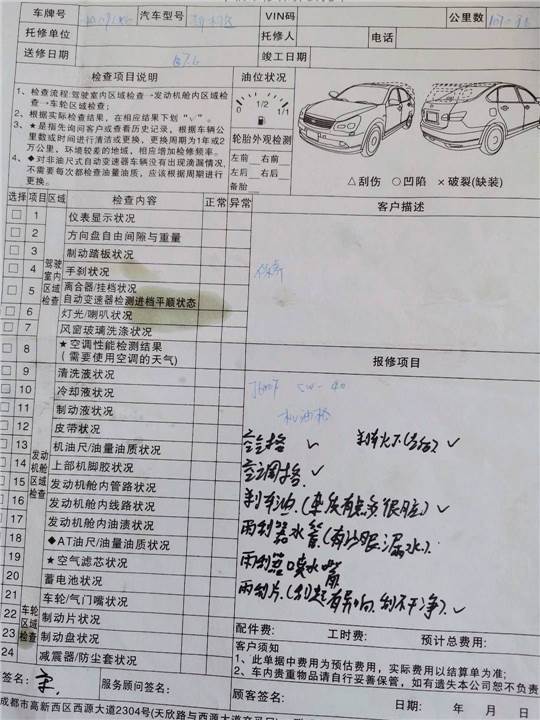 车牌号 汽车型号 VIN码 公里数
托修单位 托修人 电话
送修日期 竣工日期
检查项目说明 油位状况
1、检查流程:驾驶室内区域检查→发动机舱内区域检查→车轮区域检查;
2、根据实际检查结果,在相应结果下划“√”。
3、★是指先询问客户或查看历史记录,根据车辆公里数或时间进行清洁或更换,更换周期为1年或2万公里,环境较差的地域,相应增加检修频率。
4、◆对非油尺式自动变速器车辆没有出现滴漏情况,不需要每次都检查油量油质,应该根据周期进行更换。
0 1/2 1/1
轮胎外观检测
左前 右前
左后 右后
备胎
△刮伤 ○凹陷 ×破裂(缺装)
选择 项目 区域 检查内容 正常 异常 客户描述
驾驶室内区域检查
1 仪表显示状况
2 方向盘自由间隙与重量
3 制动踏板状况
4 手刹状况
5 离合器/挂档状况
自动变速器检测进档平顺状态
6 灯光/喇叭状况
7 风窗玻璃洗涤状况
8 ★空调性能检测结果
(需要使用空调的天气)
保养
报修项目
发动机舱区域检查
9 清洗液状况
10 冷却液状况
11 制动液状况
12 皮带状况
13 机油尺/油量油质状况
14 上部机脚胶状况
15 发动机舱内管路状况
16 发动机舱内线路状况
17 发动机舱内油渍状况
18 ◆AT油尺/油量油质状况
19 ★空气滤芯状况
20 蓄电池状况
车轮区域检查
21 车轮/气门嘴状况
22 制动片状况
23 制动盘状况
24 减震器/防尘套状况
5W-40
机油格
空气格 ✓
空调格 ✓
刹车油.(
雨刮器水管(有 漏水).
雨刮器喷水嘴
雨刮片.(刮起有异响,刮不干净). ✓
配件费: 工时费: 预计总费用:
客户须知
1、此单据中费用为预估费用,实际费用以结算单为准;
2、车内贵重物品请自行妥善保管,如有遗失本公司恕不负责
签名: 服务顾问签名: 顾客签名: 日期: 年 月 日
成都市高新西区西源大道2304号(天欣路与西源大道交